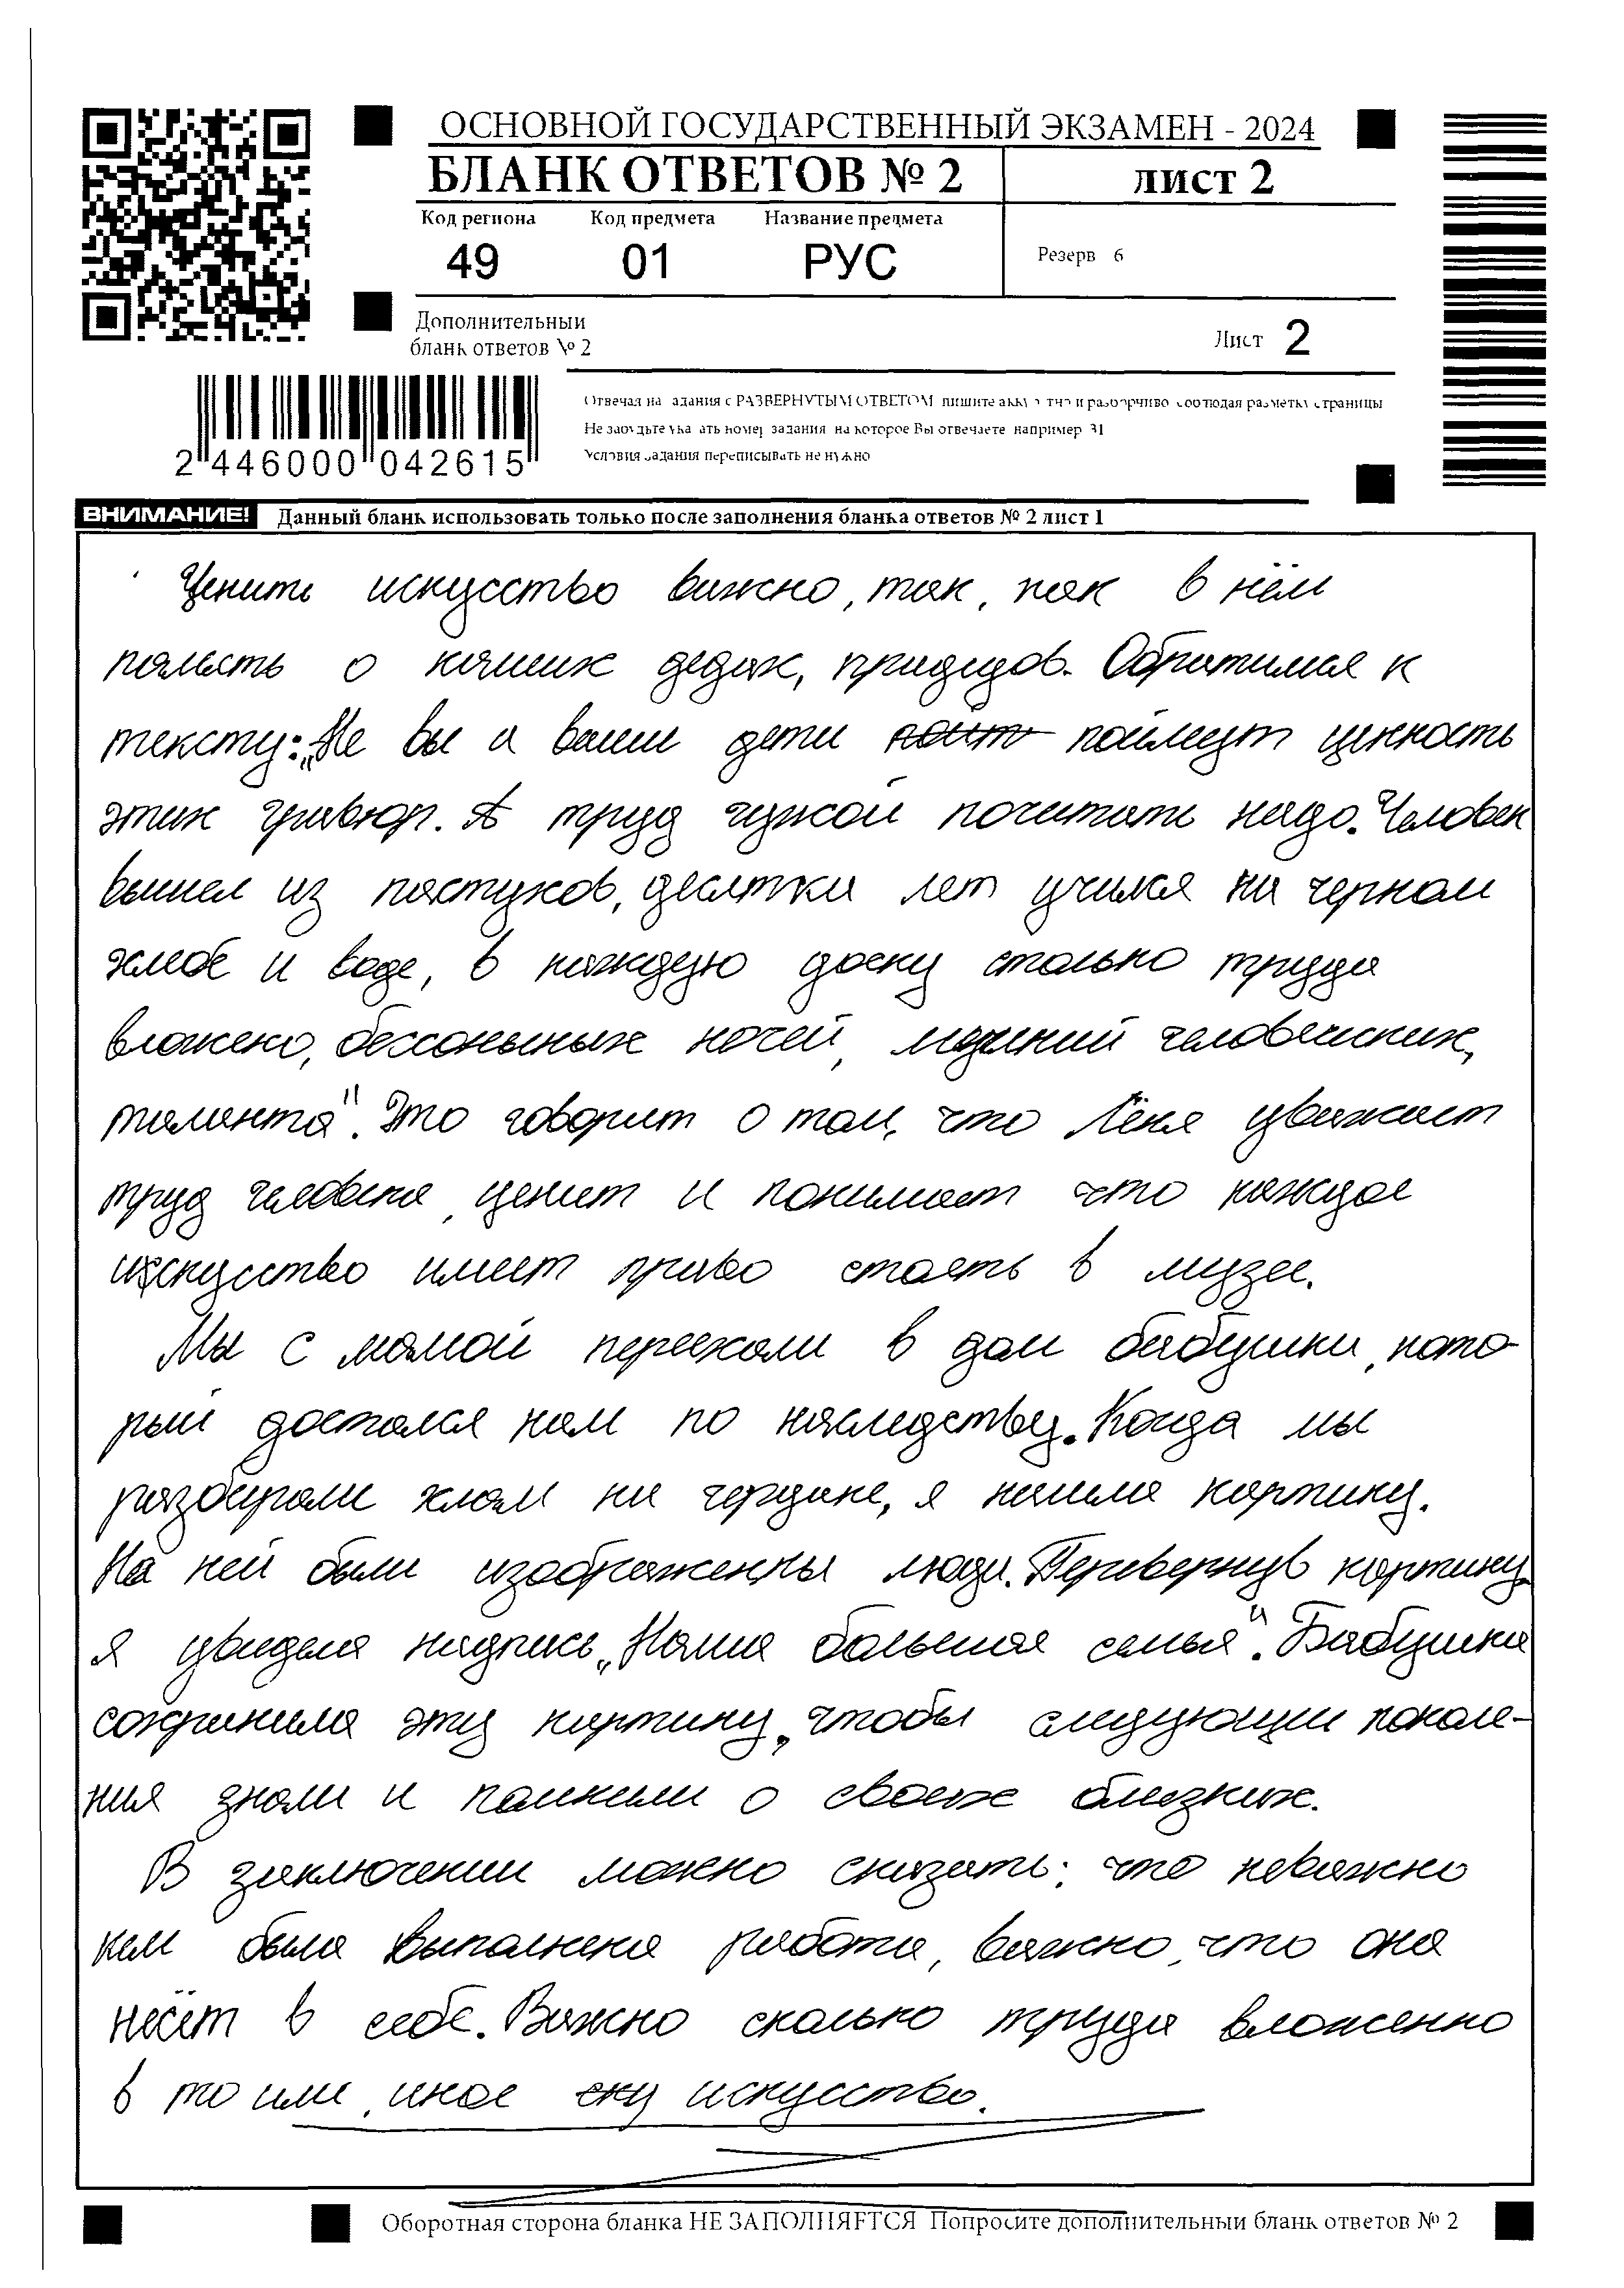 ОСНОВНОЙ ГОСУДАРСТВЕННЫЙ ЭКЗАМЕН - 2024
БЛАНК ОТВЕТОВ № 2
ЛИСТ 2
Код региона Код предмета Название предмета
49 01 РУС
Резерв 6
Дополнительный
бланк ответов № 2
Лист 2
Отвечая на задания с РАЗВЕРНУТЫМ ОТВЕТОМ, пишите аккуратно и разборчиво, соблюдая разметку страницы
Не забудьте указать номер задания, на которое Вы отвечаете, например 31
Условия задания переписывать не нужно
2 446000 042615
ВНИМАНИЕ! Данный бланк использовать только после заполнения бланка ответов № 2 лист 1
Ценить искусство важно, так, как в нём
память о наших дедах, прадедов. Обратимся к
тексту: „Не вы а ваши дети поймут ценность
этих гравюр. А труд чужой почитать надо. Человек
вышел из пастухов, десятки лет учился на черном
хлебе и воде, в каждую доску столько труда
вложено, бессоньных ночей, мучений человеческих,
таланта". Это говорит о том, что Лёня уважает
труд человека, ценит и понимает что каждое
искусство имеет право стоять в музее.
Мы с мамой переехали в дом бабушки, кото
рый достался нам по наследству. Когда мы
разбирали хлам на чердаке, я нашла картину.
На ней были изображенны люди. Перевернув картину
я увидела надпись „Наша большая семья". Бабушка
сохранила эту картину, чтобы следующии поколе-
ния знали и помнили о своих близких.
В заключении можно сказать: что неважно
кем была выполнена работа, важно, что она
несёт в себе. Важно сколько труда вложенно
в то или, иное искусство.
Оборотная сторона бланка НЕ ЗАПОЛНЯЕТСЯ Попросите дополнительный бланк ответов № 2